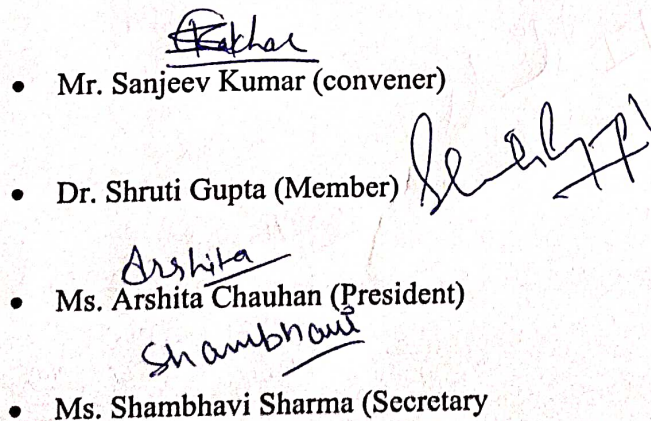 • Mr. Sanjeev Kumar (convener)
• Dr. Shruti Gupta (Member)
Arshita
• Ms. Arshita Chauhan (President)
Shambhavi
• Ms. Shambhavi Sharma (Secretary